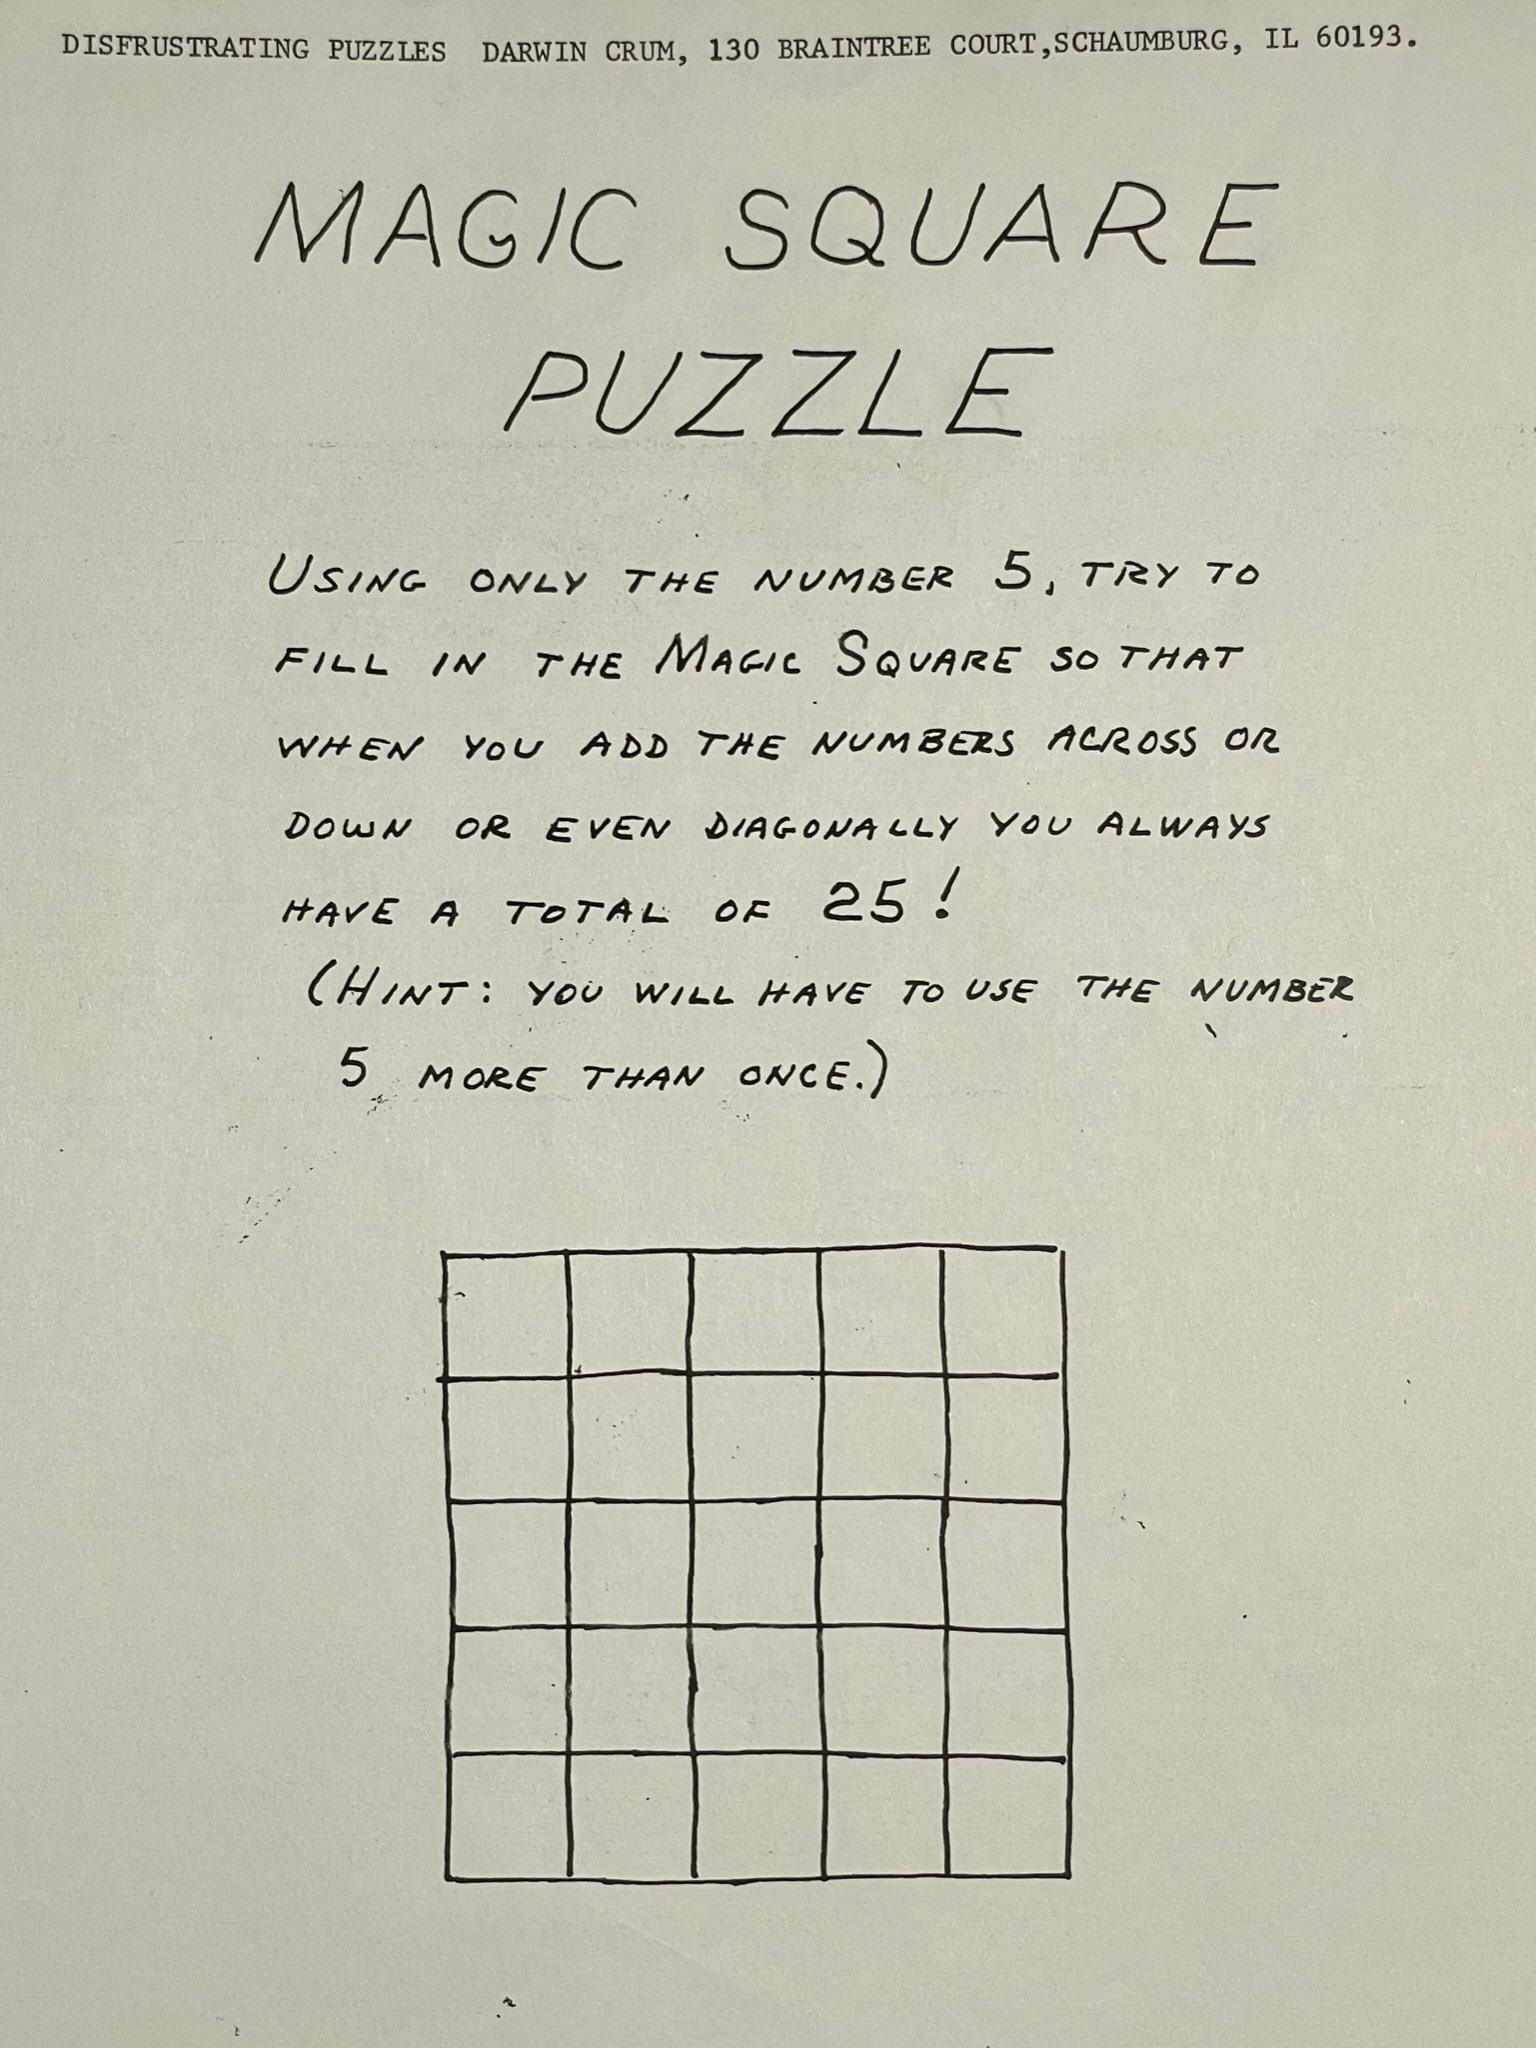 DISFRUSTRATING PUZZLES DARWIN CRUM, 130 BRAINTREE COURT,SCHAUMBURG, IL 60193.
MAGIC SQUARE
PUZZLE
USING ONLY THE NUMBER 5, TRY TO
FILL IN THE MAGIC SQUARE SO THAT
WHEN YOU ADD THE NUMBERS ACROSS OR
DOWN OR EVEN DIAGONALLY YOU ALWAYS
HAVE A TOTAL OF 25!
(HINT: YOU WILL HAVE TO USE THE NUMBER
5 MORE THAN ONCE.)